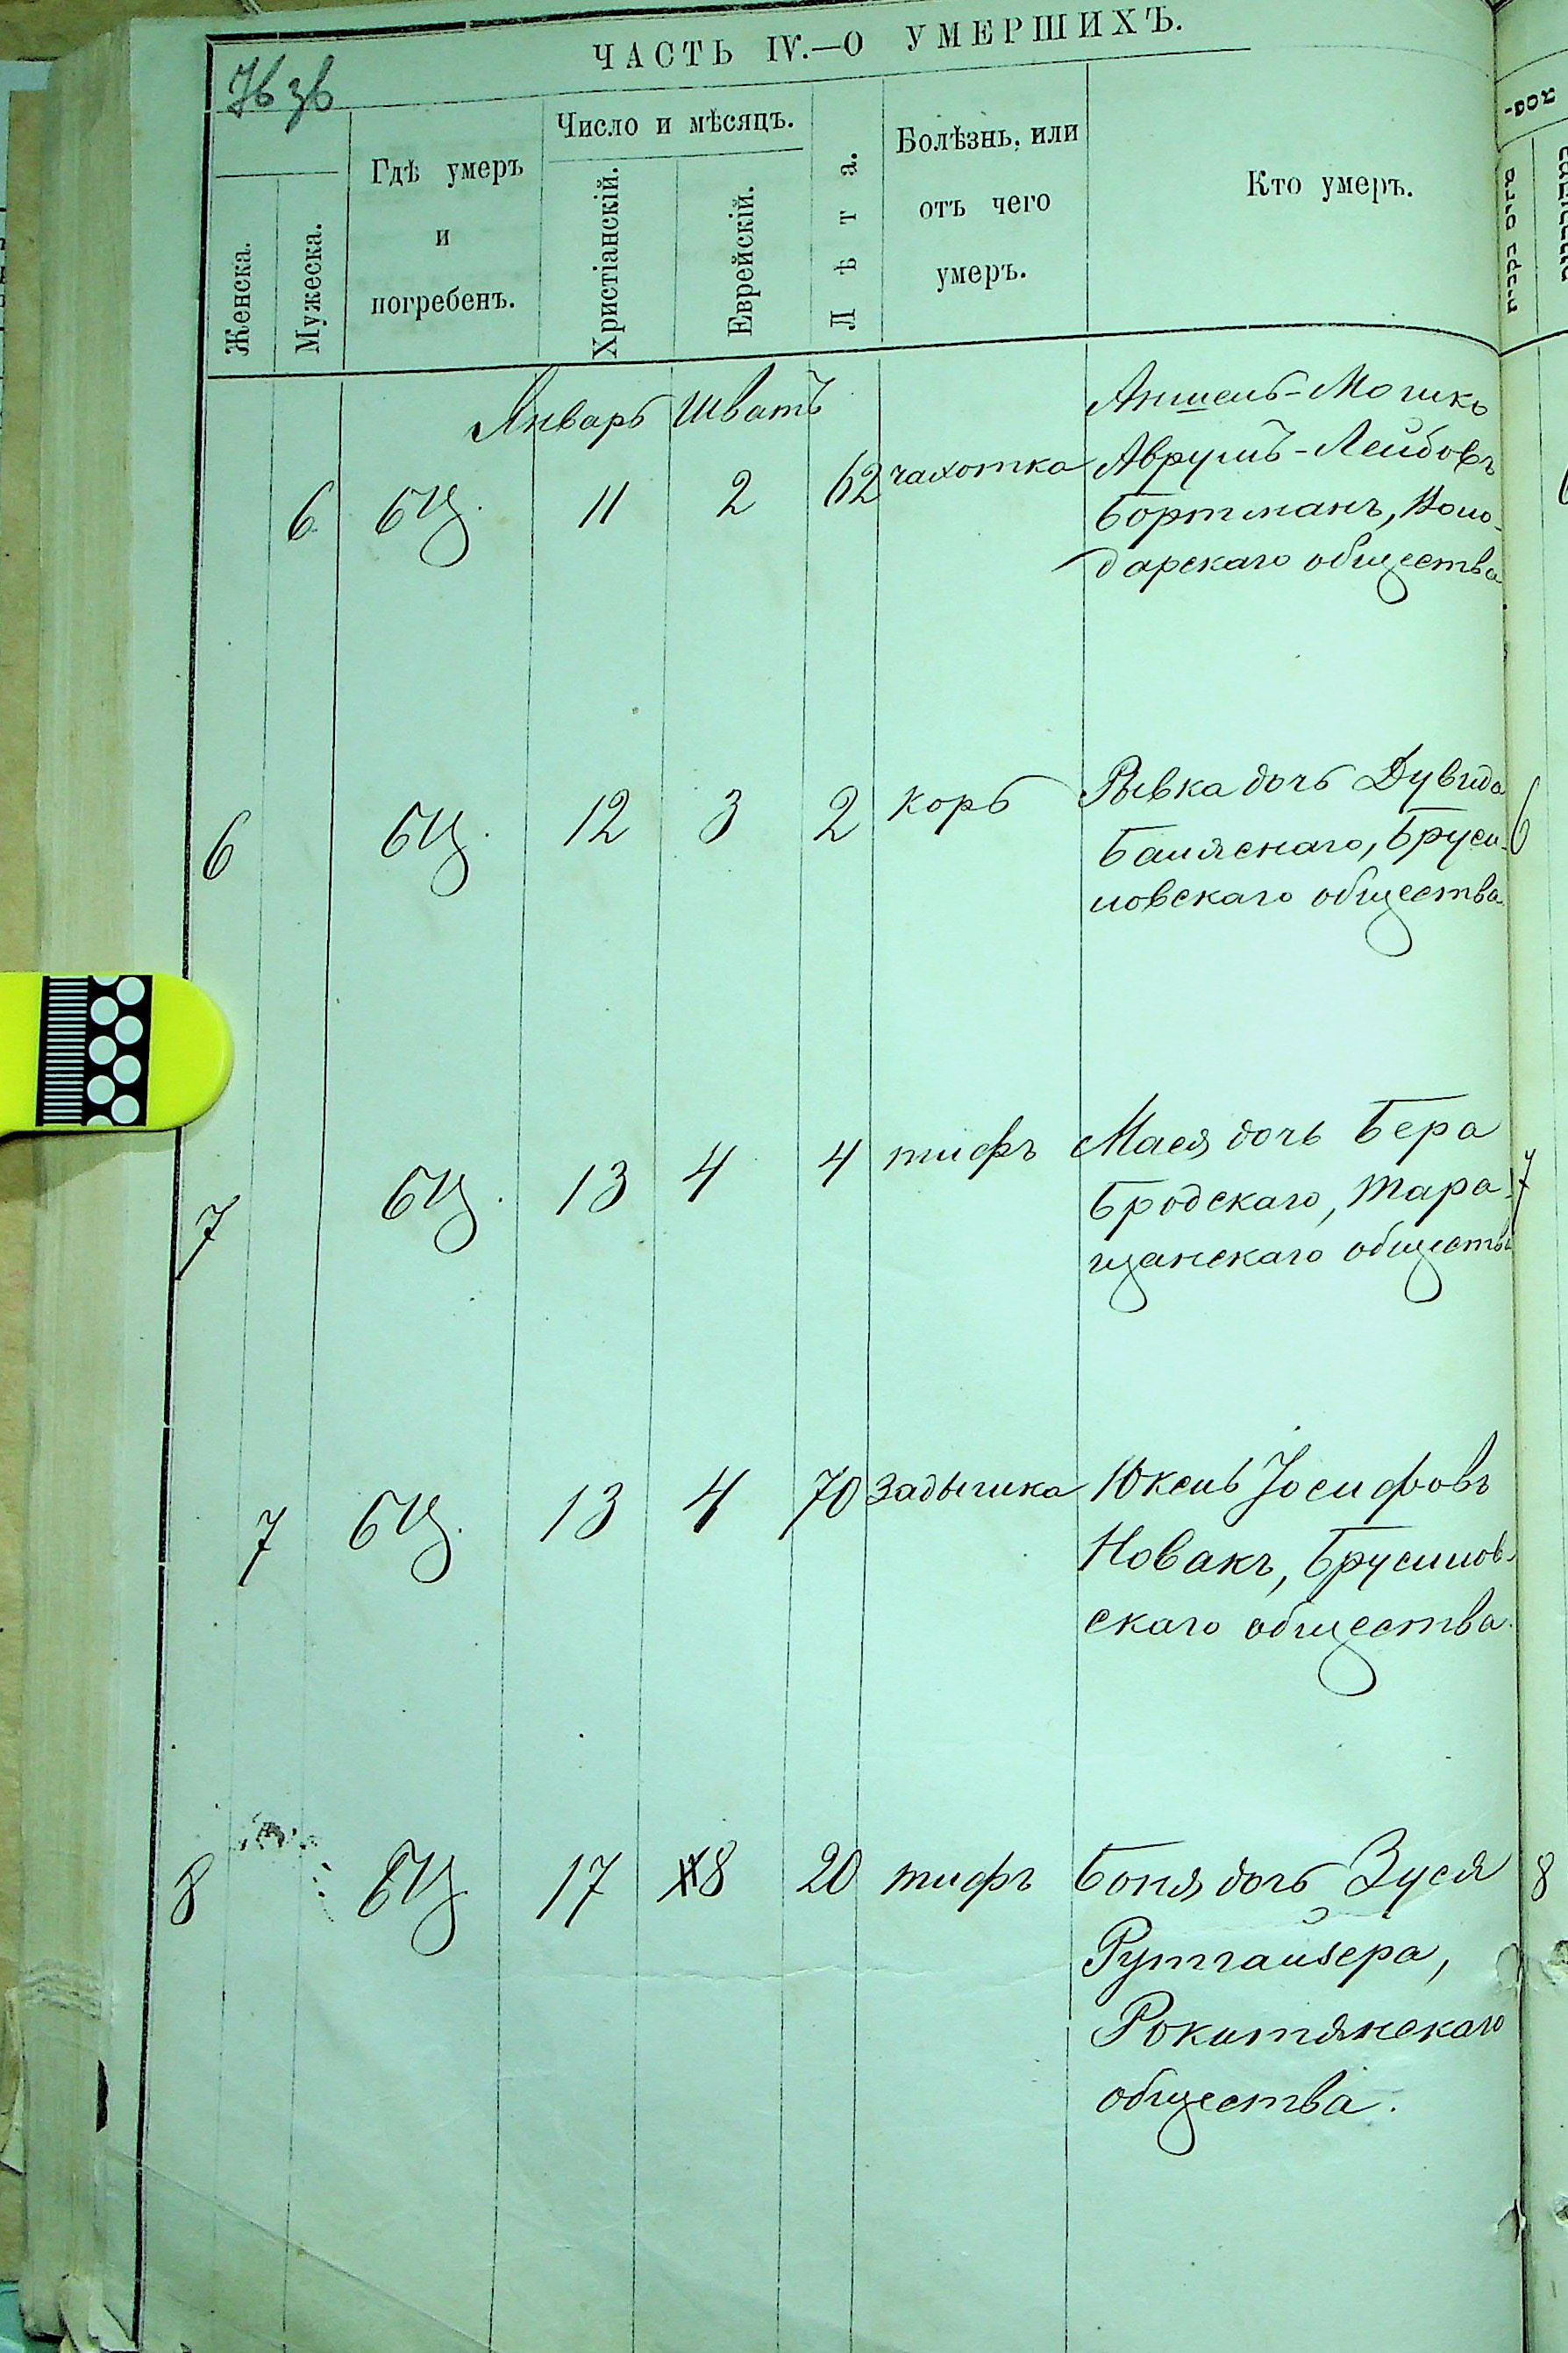 ЧАСТЬ IV.—О УМЕРШИХЪ.
Женска.
Мужеска.
Гдѣ умеръ
и
погребенъ.
Число и мѣсяцъ.
Христіанскій.
Еврейскій.
Лѣта.
Болѣзнь, или
отъ чего
умеръ.
Кто умеръ.
Январь Шватъ
6 БЦ. 11 2 62 чахотка
Аншель-Мошко
Аврумъ-Лейбовъ
Бортманъ, Воло-
дарскаго общества
6 БЦ. 12 3 2 корь
Рывка дочь Дувида
Балясного, Бруси-
ловскаго общества
6
7 БЦ. 13 4 4 тифъ
Мася дочь Бера
Бродскаго, Тара-
щанскаго общества
7
7 БЦ. 13 4 70 Задышка
Юкель Іосифовъ
Новакъ, Брусилов-
скаго общества.
8 БЦ 17 8 20 тифъ
Боня дочь Зуся
Рутгайзера,
Рокитянскаго
общества.
8